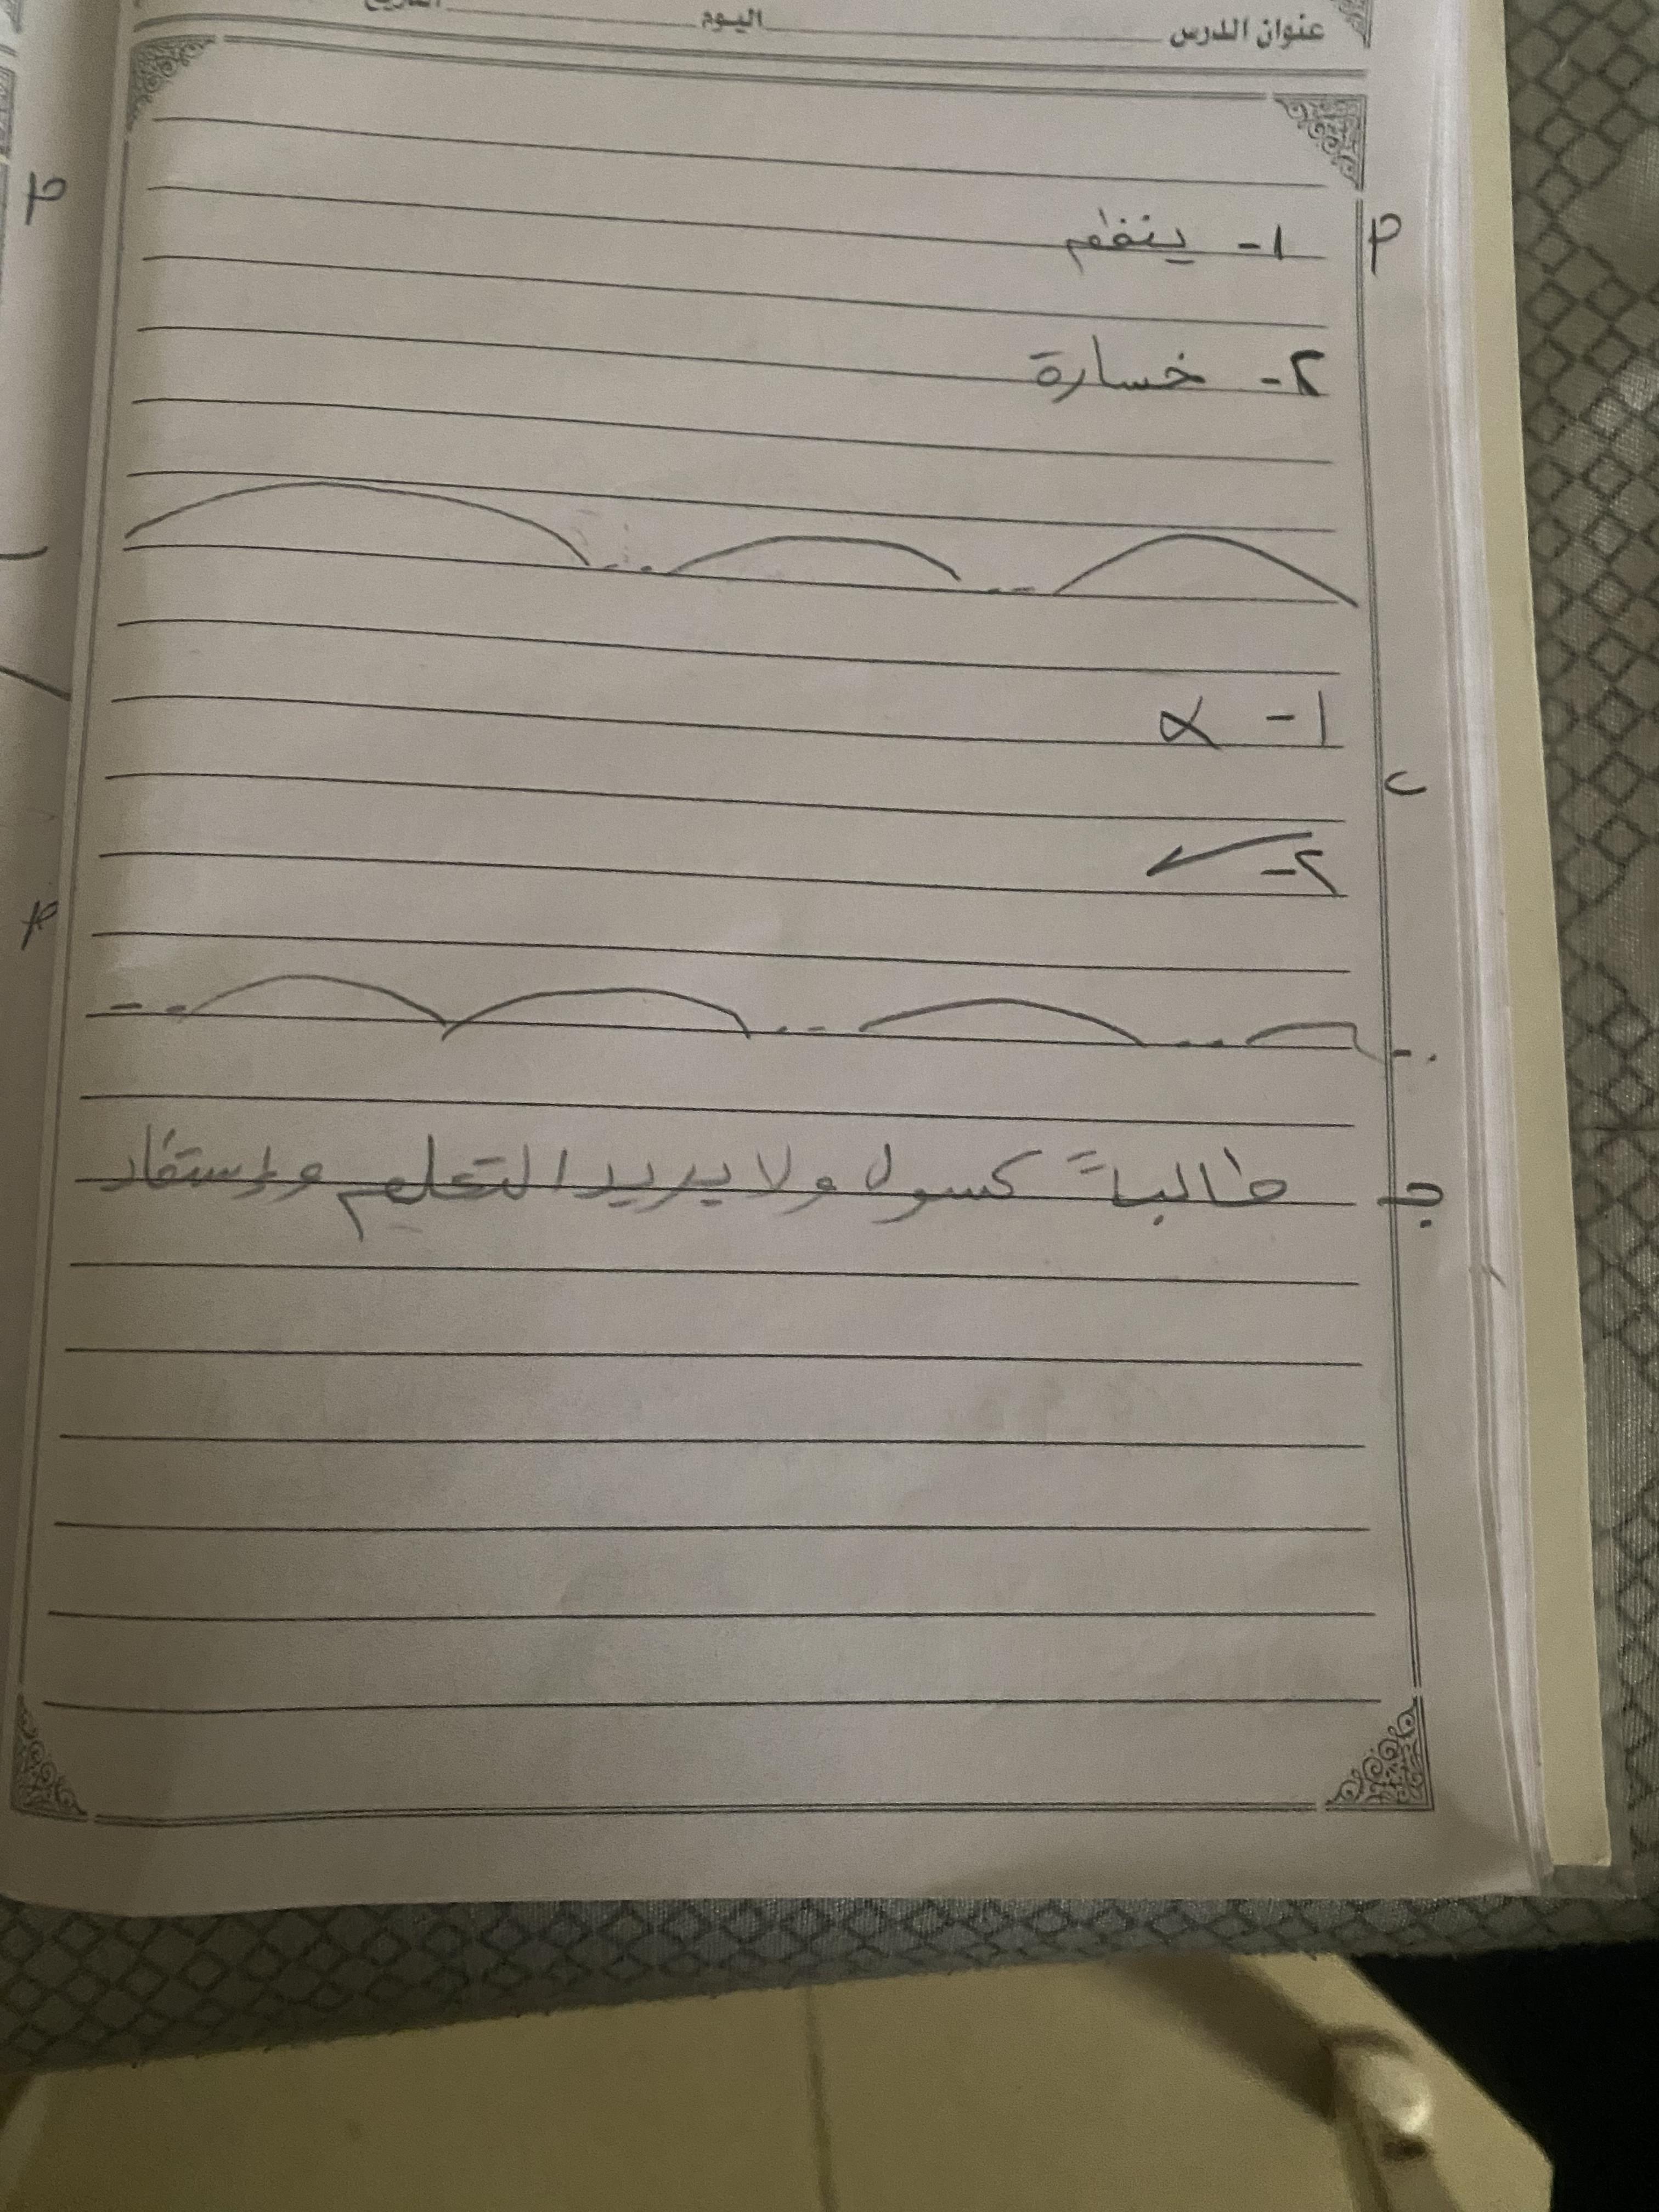 عنوان الدرس اليوم التاريخ
م
١- ينفعهم
٢- خسارة
١- ×
ب
٢- ✓
جـ طالباً كسول ولا يريد التعلم وإستفاد